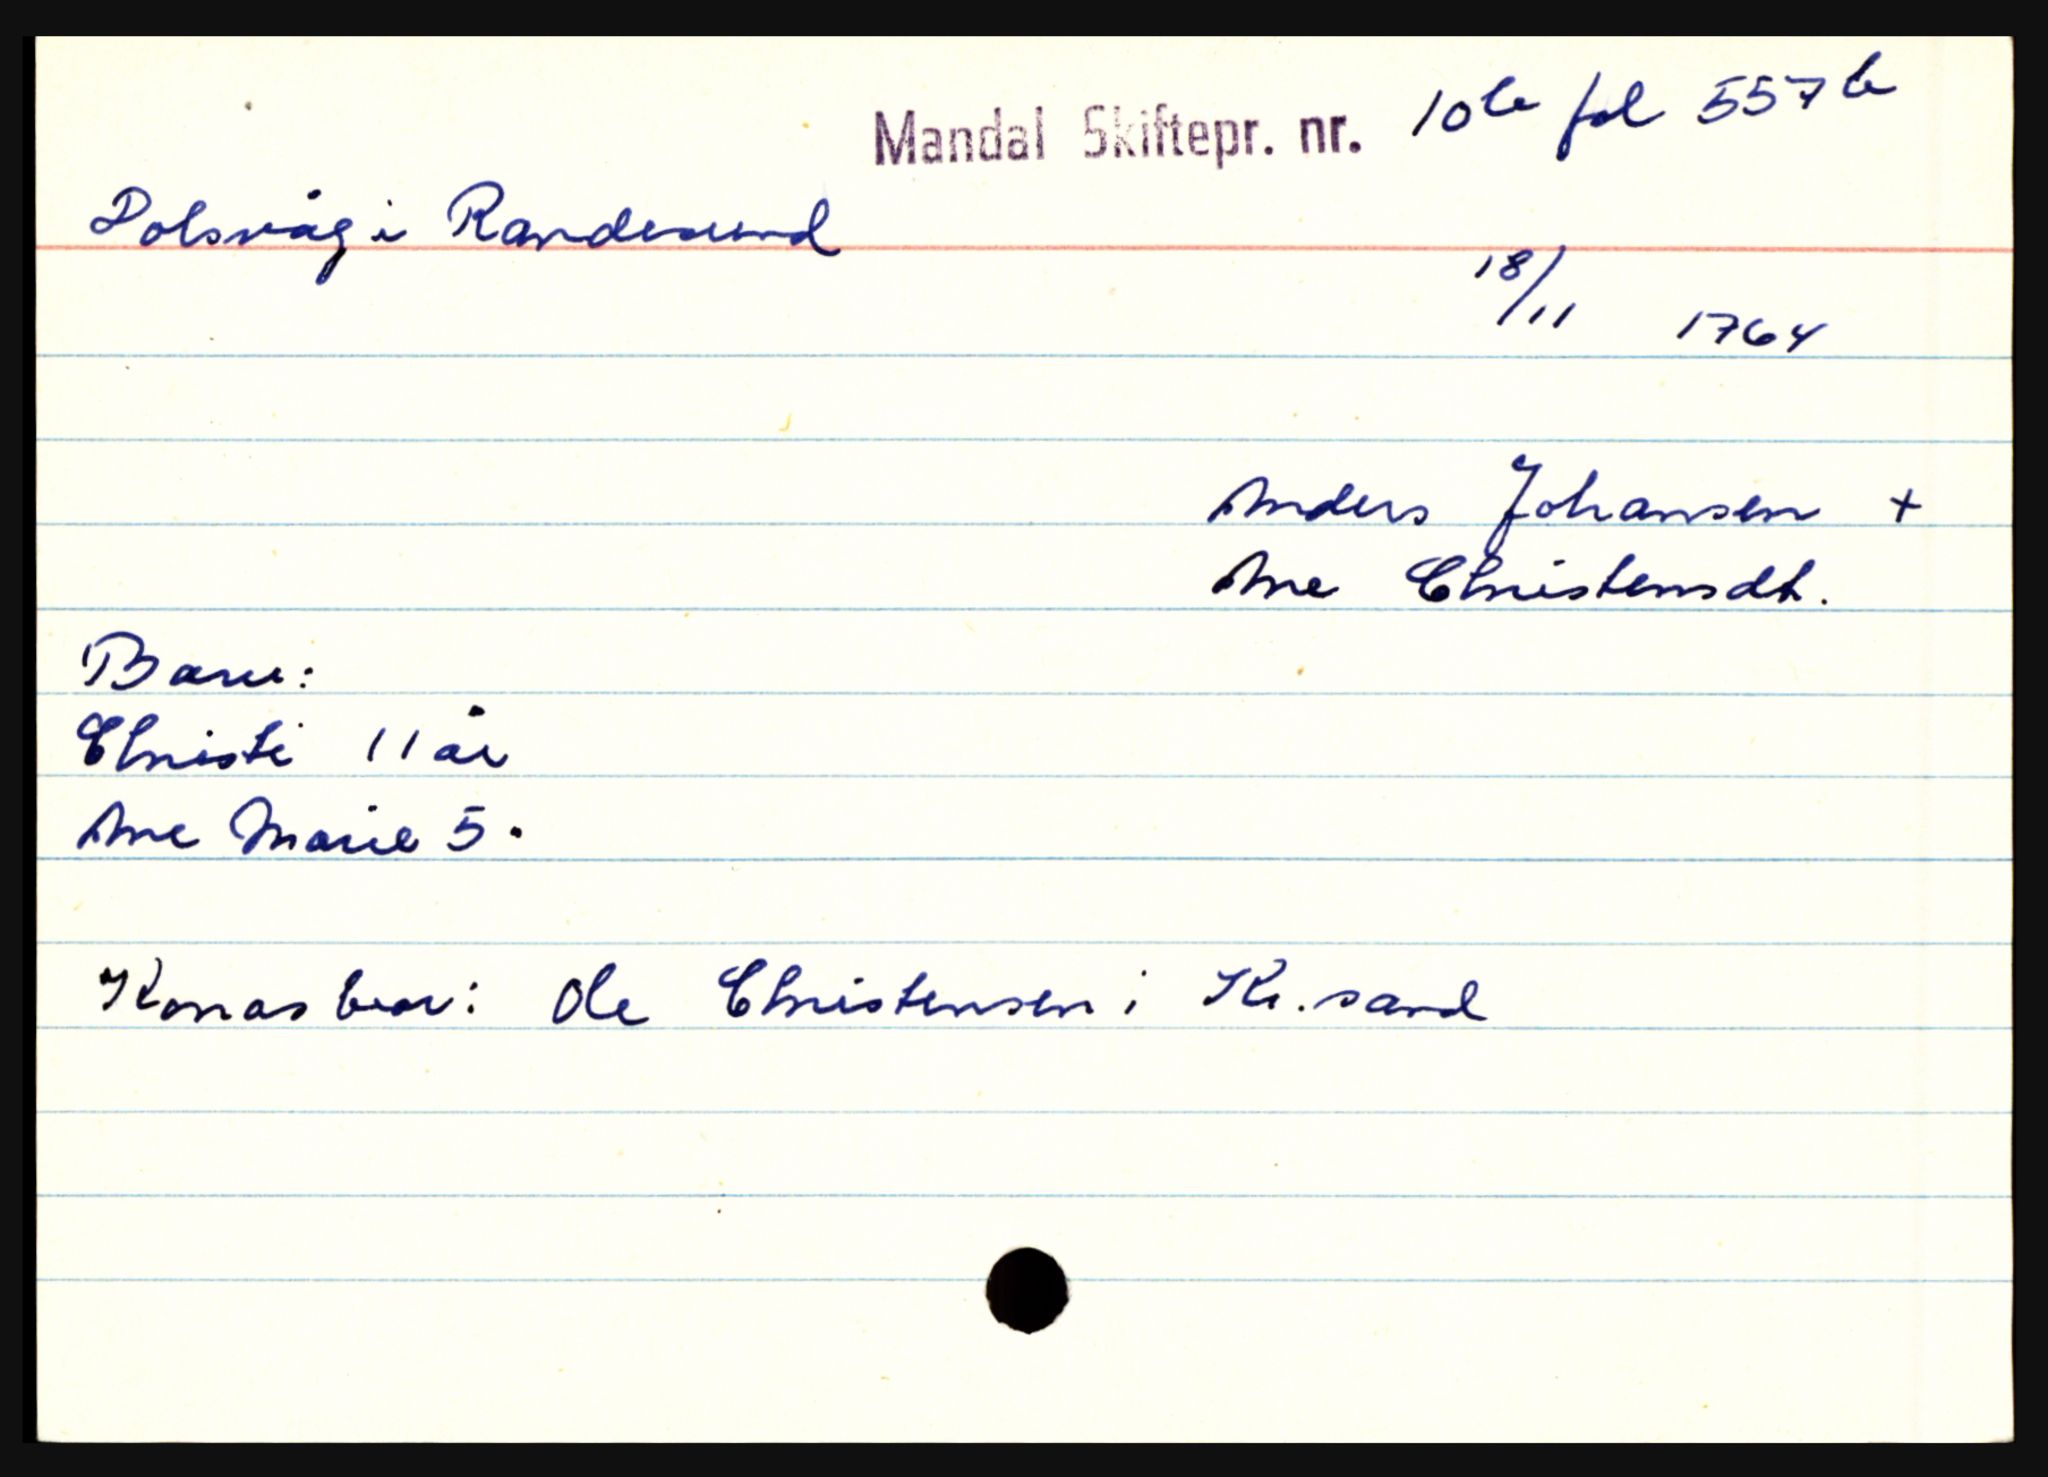 Mandal Skiftepr. nr. 10b fol 557b
Dolsvåg i Randesund
18/11 1764
Anders Johansen +
Ane Christensdt.
Barn:
Christi 11 år
Ane Marie 5 .
Konas bror: Ole Christensen i Kr.sand